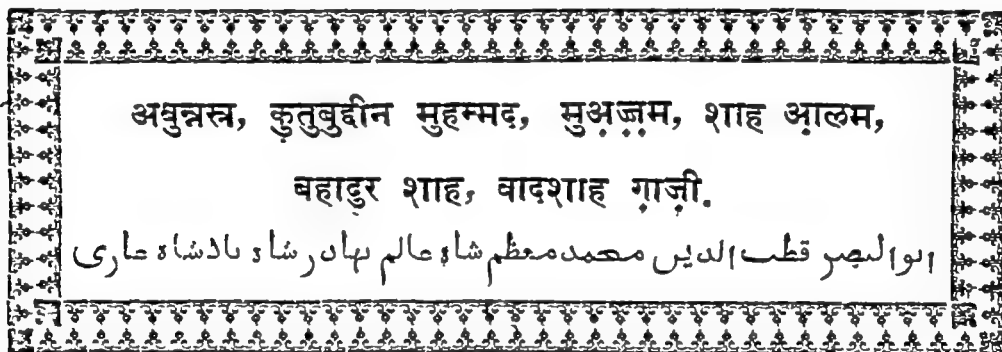 अबुन्नस्र, क़ुतुबुद्दीन मुहम्मद, मुअ़ज़्ज़म, शाह आ़लम,
बहादुर शाह, वादशाह ग़ाज़ी.
ابوالنصر قطب الدین محمد معظم شاہ عالم بہادر شاہ بادشاہ غازی